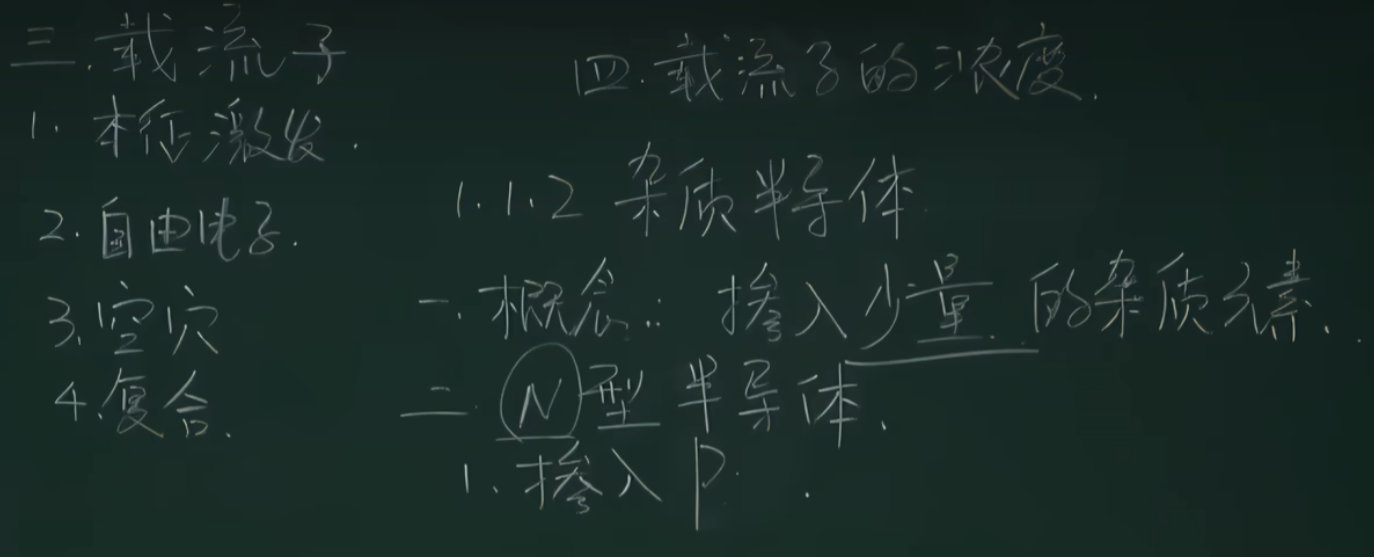 三.载流子
1.本征激发.
2.自由电子.
3.空穴
4.复合.
四.载流子的浓度.
1.1.2 杂质半导体
一.概念:掺入少量的杂质元素.
二.N型半导体.
1.掺入P.